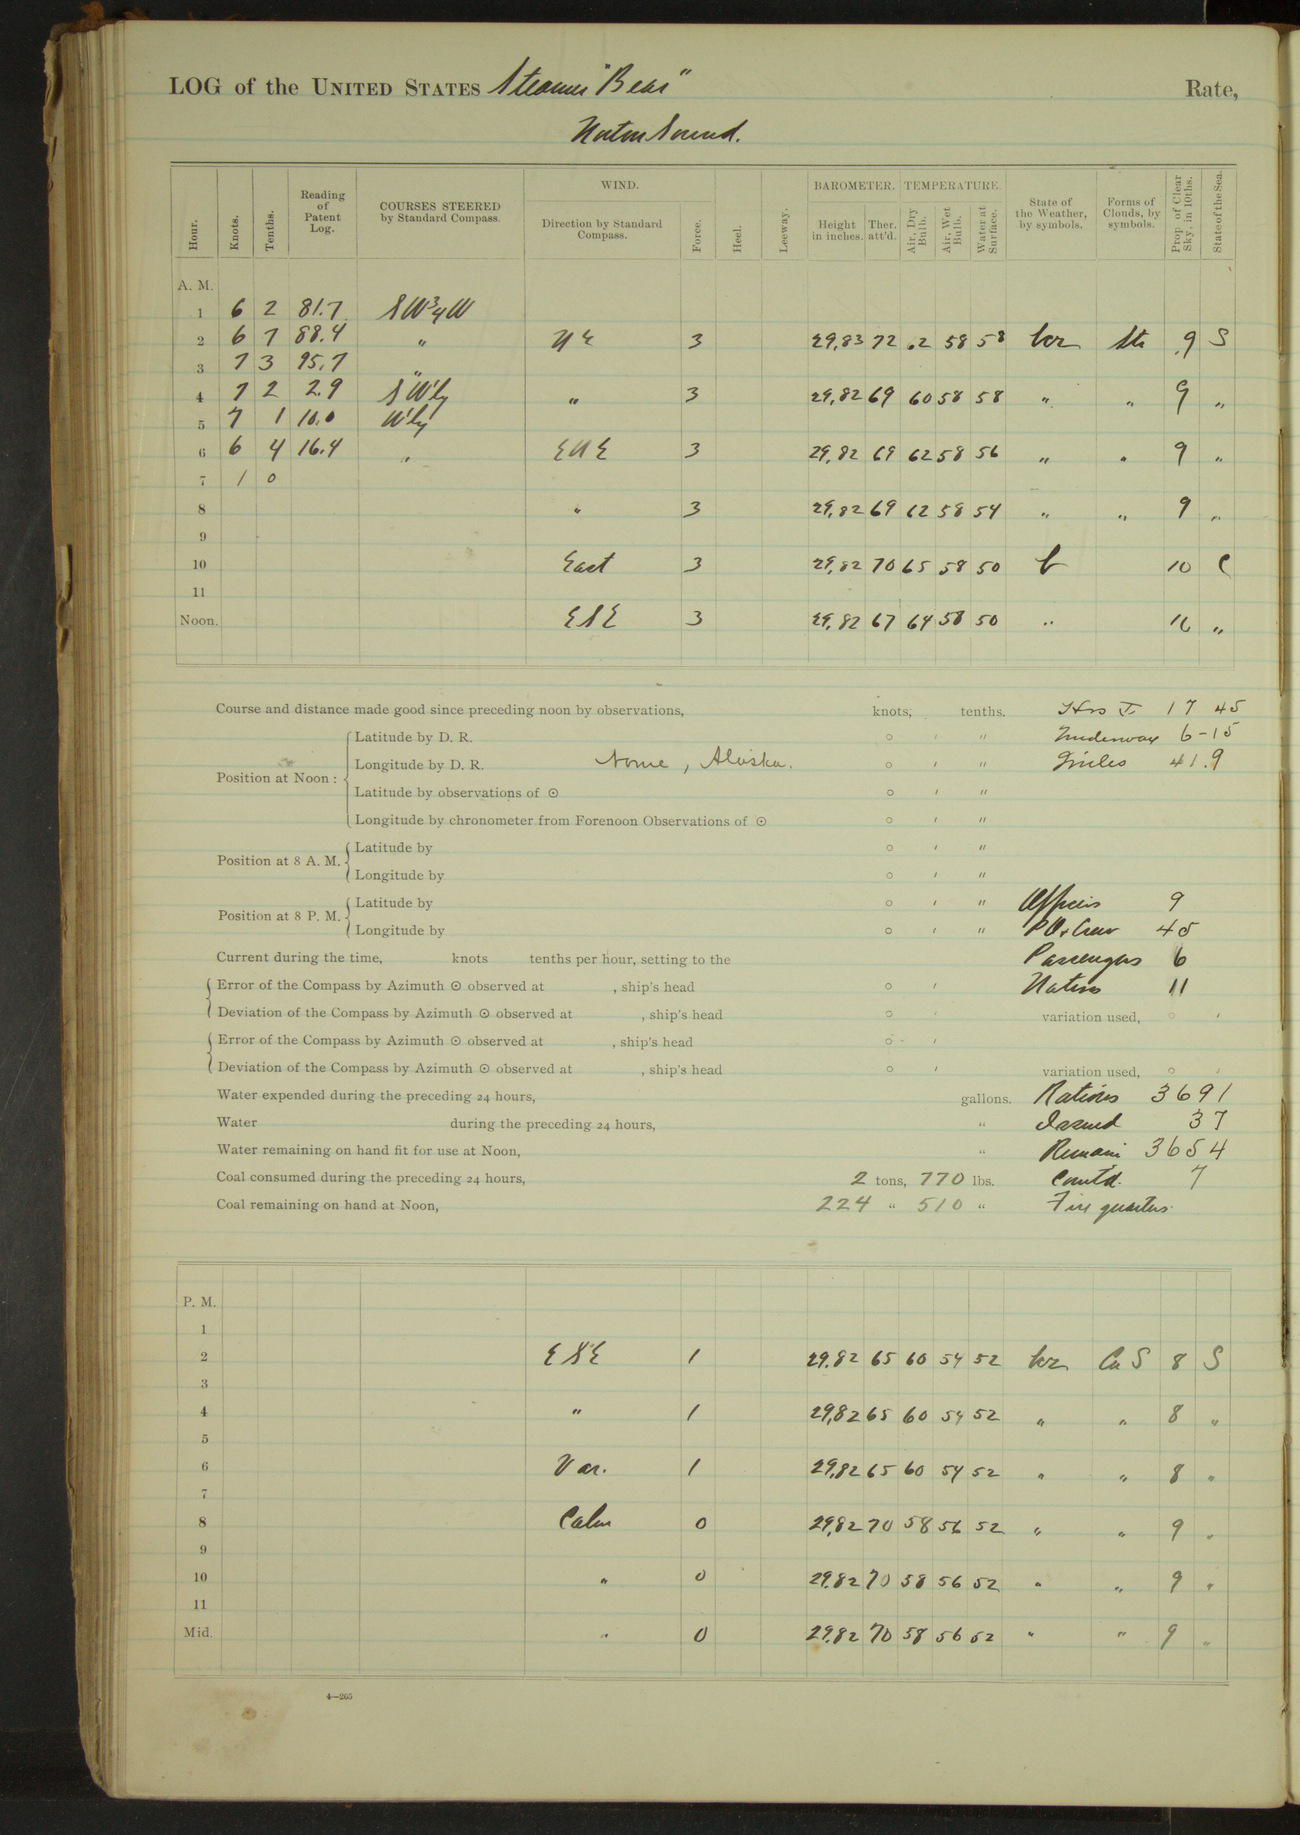 LOG of the UNITED STATES Steamer "Bear" Rate,
Norton Sound.
Hour. Knots. Tenths. Reading of Patent Log. COURSES STEERED by Standard Compass. WIND. Direction by Standard Compass. Force. Heel. Leeway. BAROMETER. Height in inches. Ther. att'd. TEMPERATURE. Air, Dry Bulb. Air, Wet Bulb. Water at Surface. State of the Weather, by symbols. Forms of Clouds, by symbols. Prop. of Clear Sky, in 10ths. State of the Sea.
A. M.
1 6 2 81.7 SW 3/4 W
2 6 7 88.4 " NE 3 29,83 72 62 58 58 bcz Str 9 S
3 7 3 95.7 "
4 7 2 2.9 SW'ly " 3 29,82 69 60 58 58 " " 9 "
5 7 1 10.0 W'ly
6 6 4 16.4 " ENE 3 29,82 69 62 58 56 " " 9 "
7 1 0
8 " 3 29,82 69 62 58 54 " " 9 "
9
10 East 3 29,82 70 65 58 50 b 10 C
11
Noon. ESE 3 29,82 67 64 58 50 " 10 "
Course and distance made good since preceding noon by observations, knots, tenths. Hrs 17 45
Latitude by D. R. ° ' " Underway 6-15
Position at Noon: Longitude by D. R. Nome, Alaska. ° ' " Miles 41.9
Latitude by observations of ☉ ° ' "
Longitude by chronometer from Forenoon Observations of ☉ ° ' "
Position at 8 A. M. Latitude by ° ' "
Longitude by ° ' "
Position at 8 P. M. Latitude by ° ' " Officers 9
Longitude by ° ' " PO & Crew 45
Current during the time, knots tenths per hour, setting to the Passengers 6
Error of the Compass by Azimuth ☉ observed at , ship's head ° ' Natives 11
Deviation of the Compass by Azimuth ☉ observed at , ship's head ° ' variation used, ° '
Error of the Compass by Azimuth ☉ observed at , ship's head ° '
Deviation of the Compass by Azimuth ☉ observed at , ship's head ° ' variation used, ° '
Water expended during the preceding 24 hours, gallons. Rations 3691
Water during the preceding 24 hours, " Issued 37
Water remaining on hand fit for use at Noon, " Remain 3654
Coal consumed during the preceding 24 hours, 2 tons, 770 lbs. Comt'd. 7
Coal remaining on hand at Noon, 224 " 510 " Fire quarters.
P. M.
1
2 ESE 1 29.82 65 60 54 52 bcz Cu S 8 S
3
4 " 1 29,82 65 60 54 52 " " 8 "
5
6 Var. 1 29,82 65 60 54 52 " " 8 "
7
8 Calm 0 29,82 70 58 56 52 " " 9 "
9
10 " 0 29.82 70 58 56 52 " " 9 "
11
Mid. " 0 29.82 70 58 56 52 " " 9 "
4—265